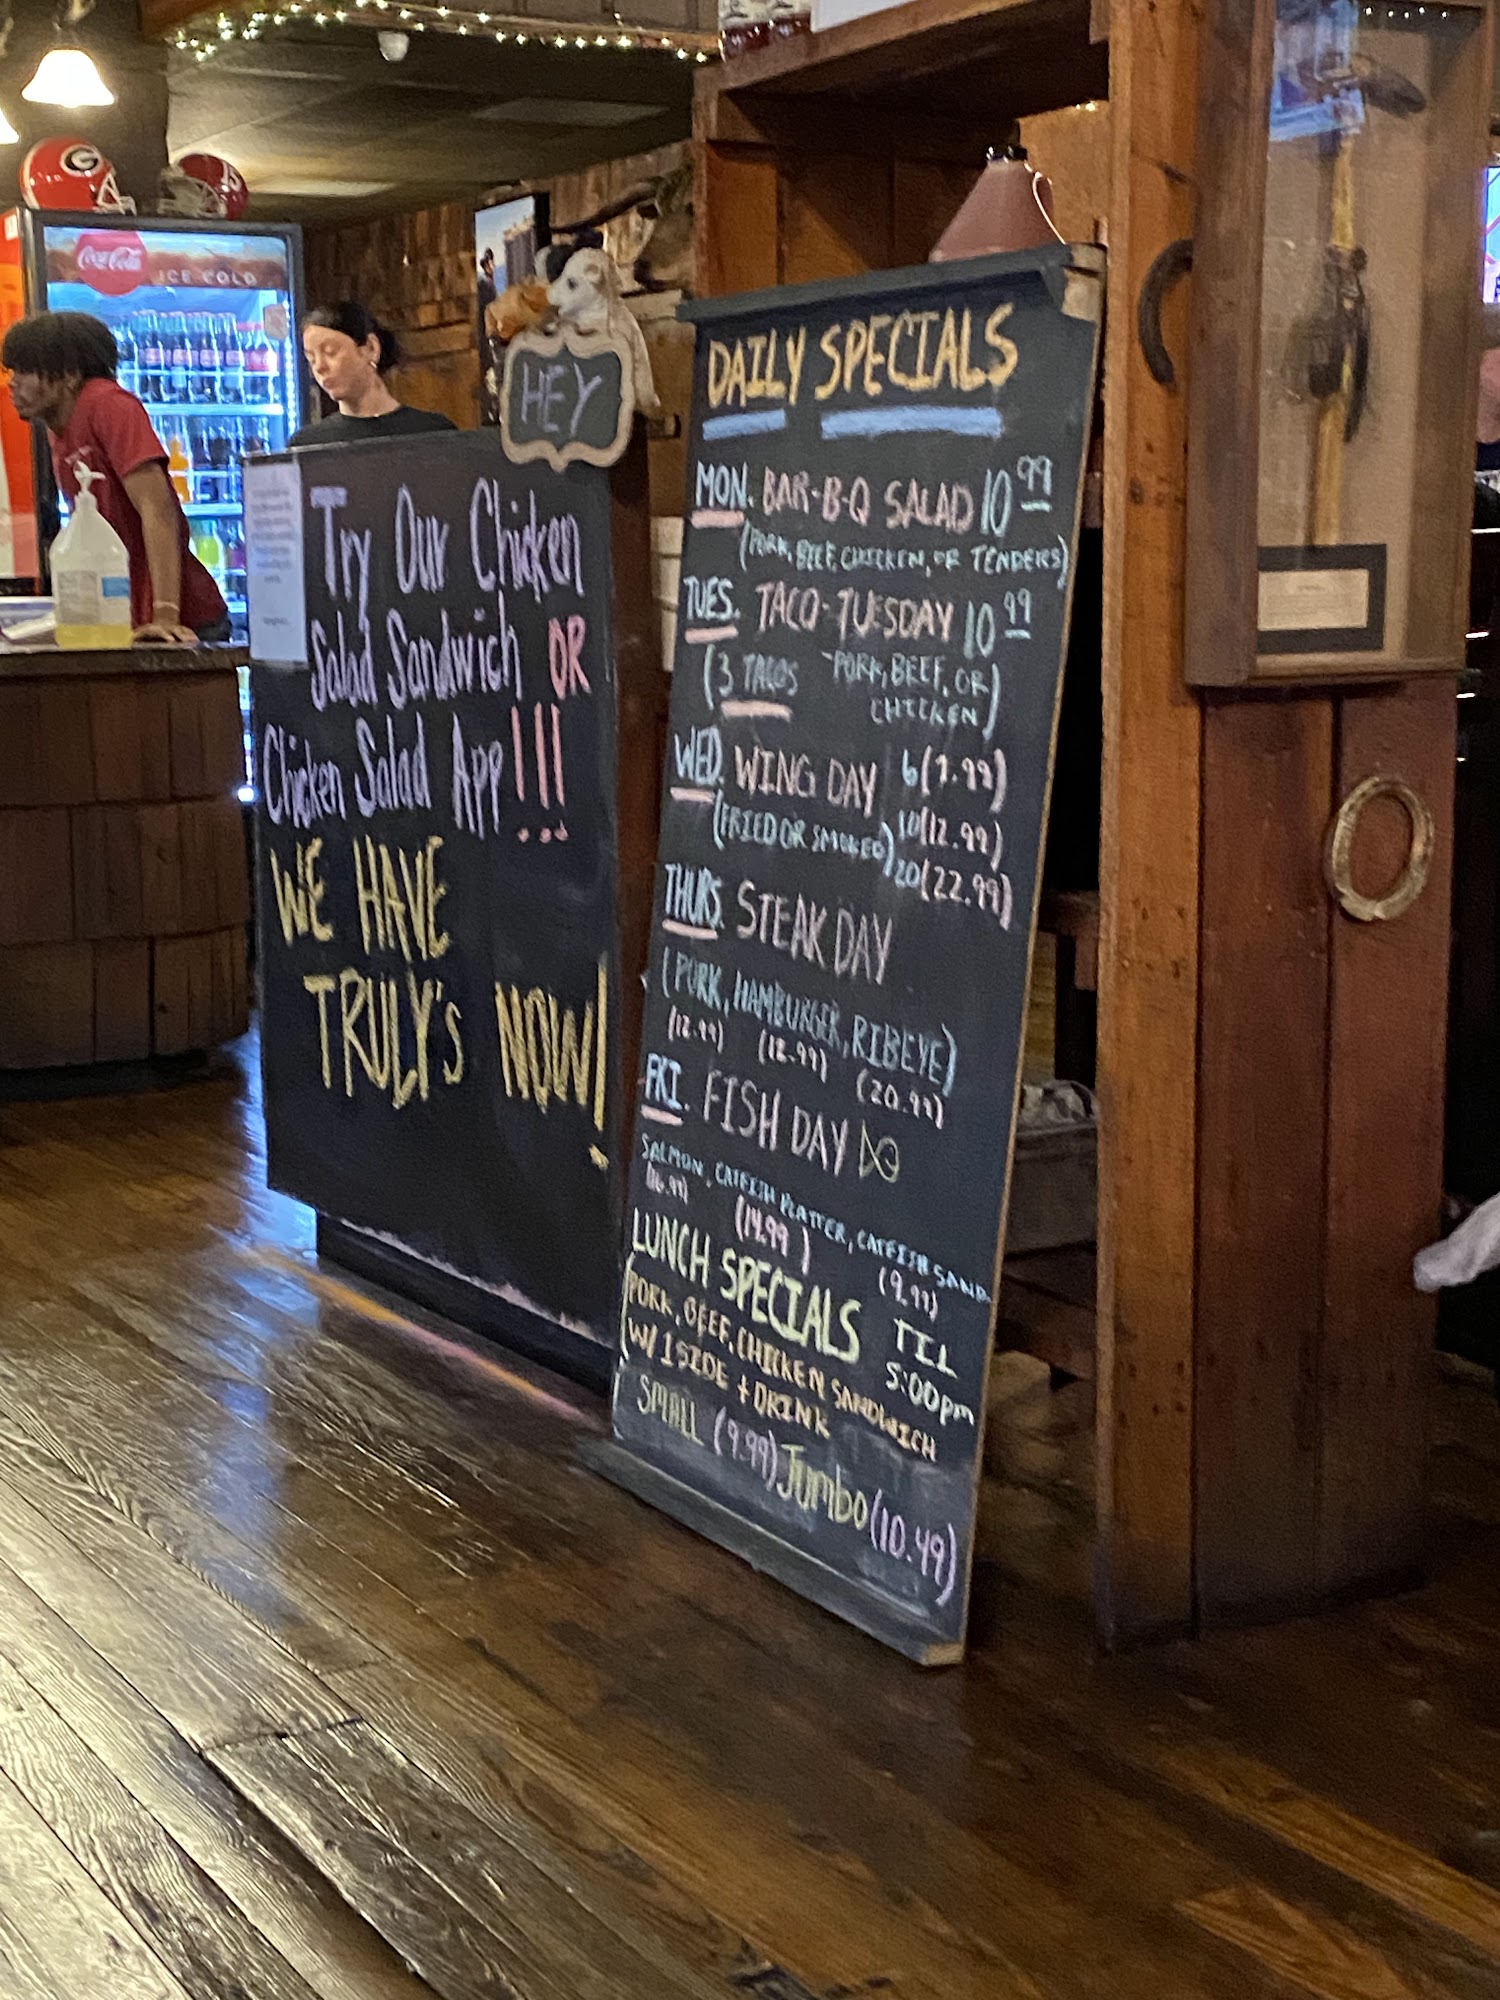 Coca-Cola
ICE COLD
G
HEY
Try Our Chicken
Salad Sandwich OR
Chicken Salad App!!!
WE HAVE
TRULY'S NOW!
DAILY SPECIALS
MON. BAR-B-Q SALAD 10 99
(PORK, BEEF, CHICKEN, OR TENDERS)
TUES. TACO-TUESDAY 10 99
(3 TACOS - PORK, BEEF, OR
CHICKEN)
WED. WING DAY 6(7.99)
(FRIED OR SMOKED) 10(12.99)
20(22.99)
THURS. STEAK DAY
(PORK, HAMBURGER, RIBEYE)
(12.99) (12.99) (20.99)
FRI. FISH DAY
SALMON, CATFISH PLATTER, CATFISH SAND.
(16.99) (14.99) (9.99)
LUNCH SPECIALS TIL
5:00pm
(PORK, BEEF, CHICKEN SANDWICH
W/ 1 SIDE + DRINK
SMALL (9.99) Jumbo (10.49)